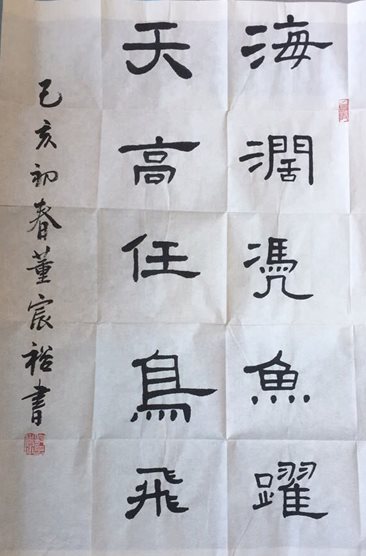 海濶憑魚躍
天高任鳥飛
己亥初春董宸裕書